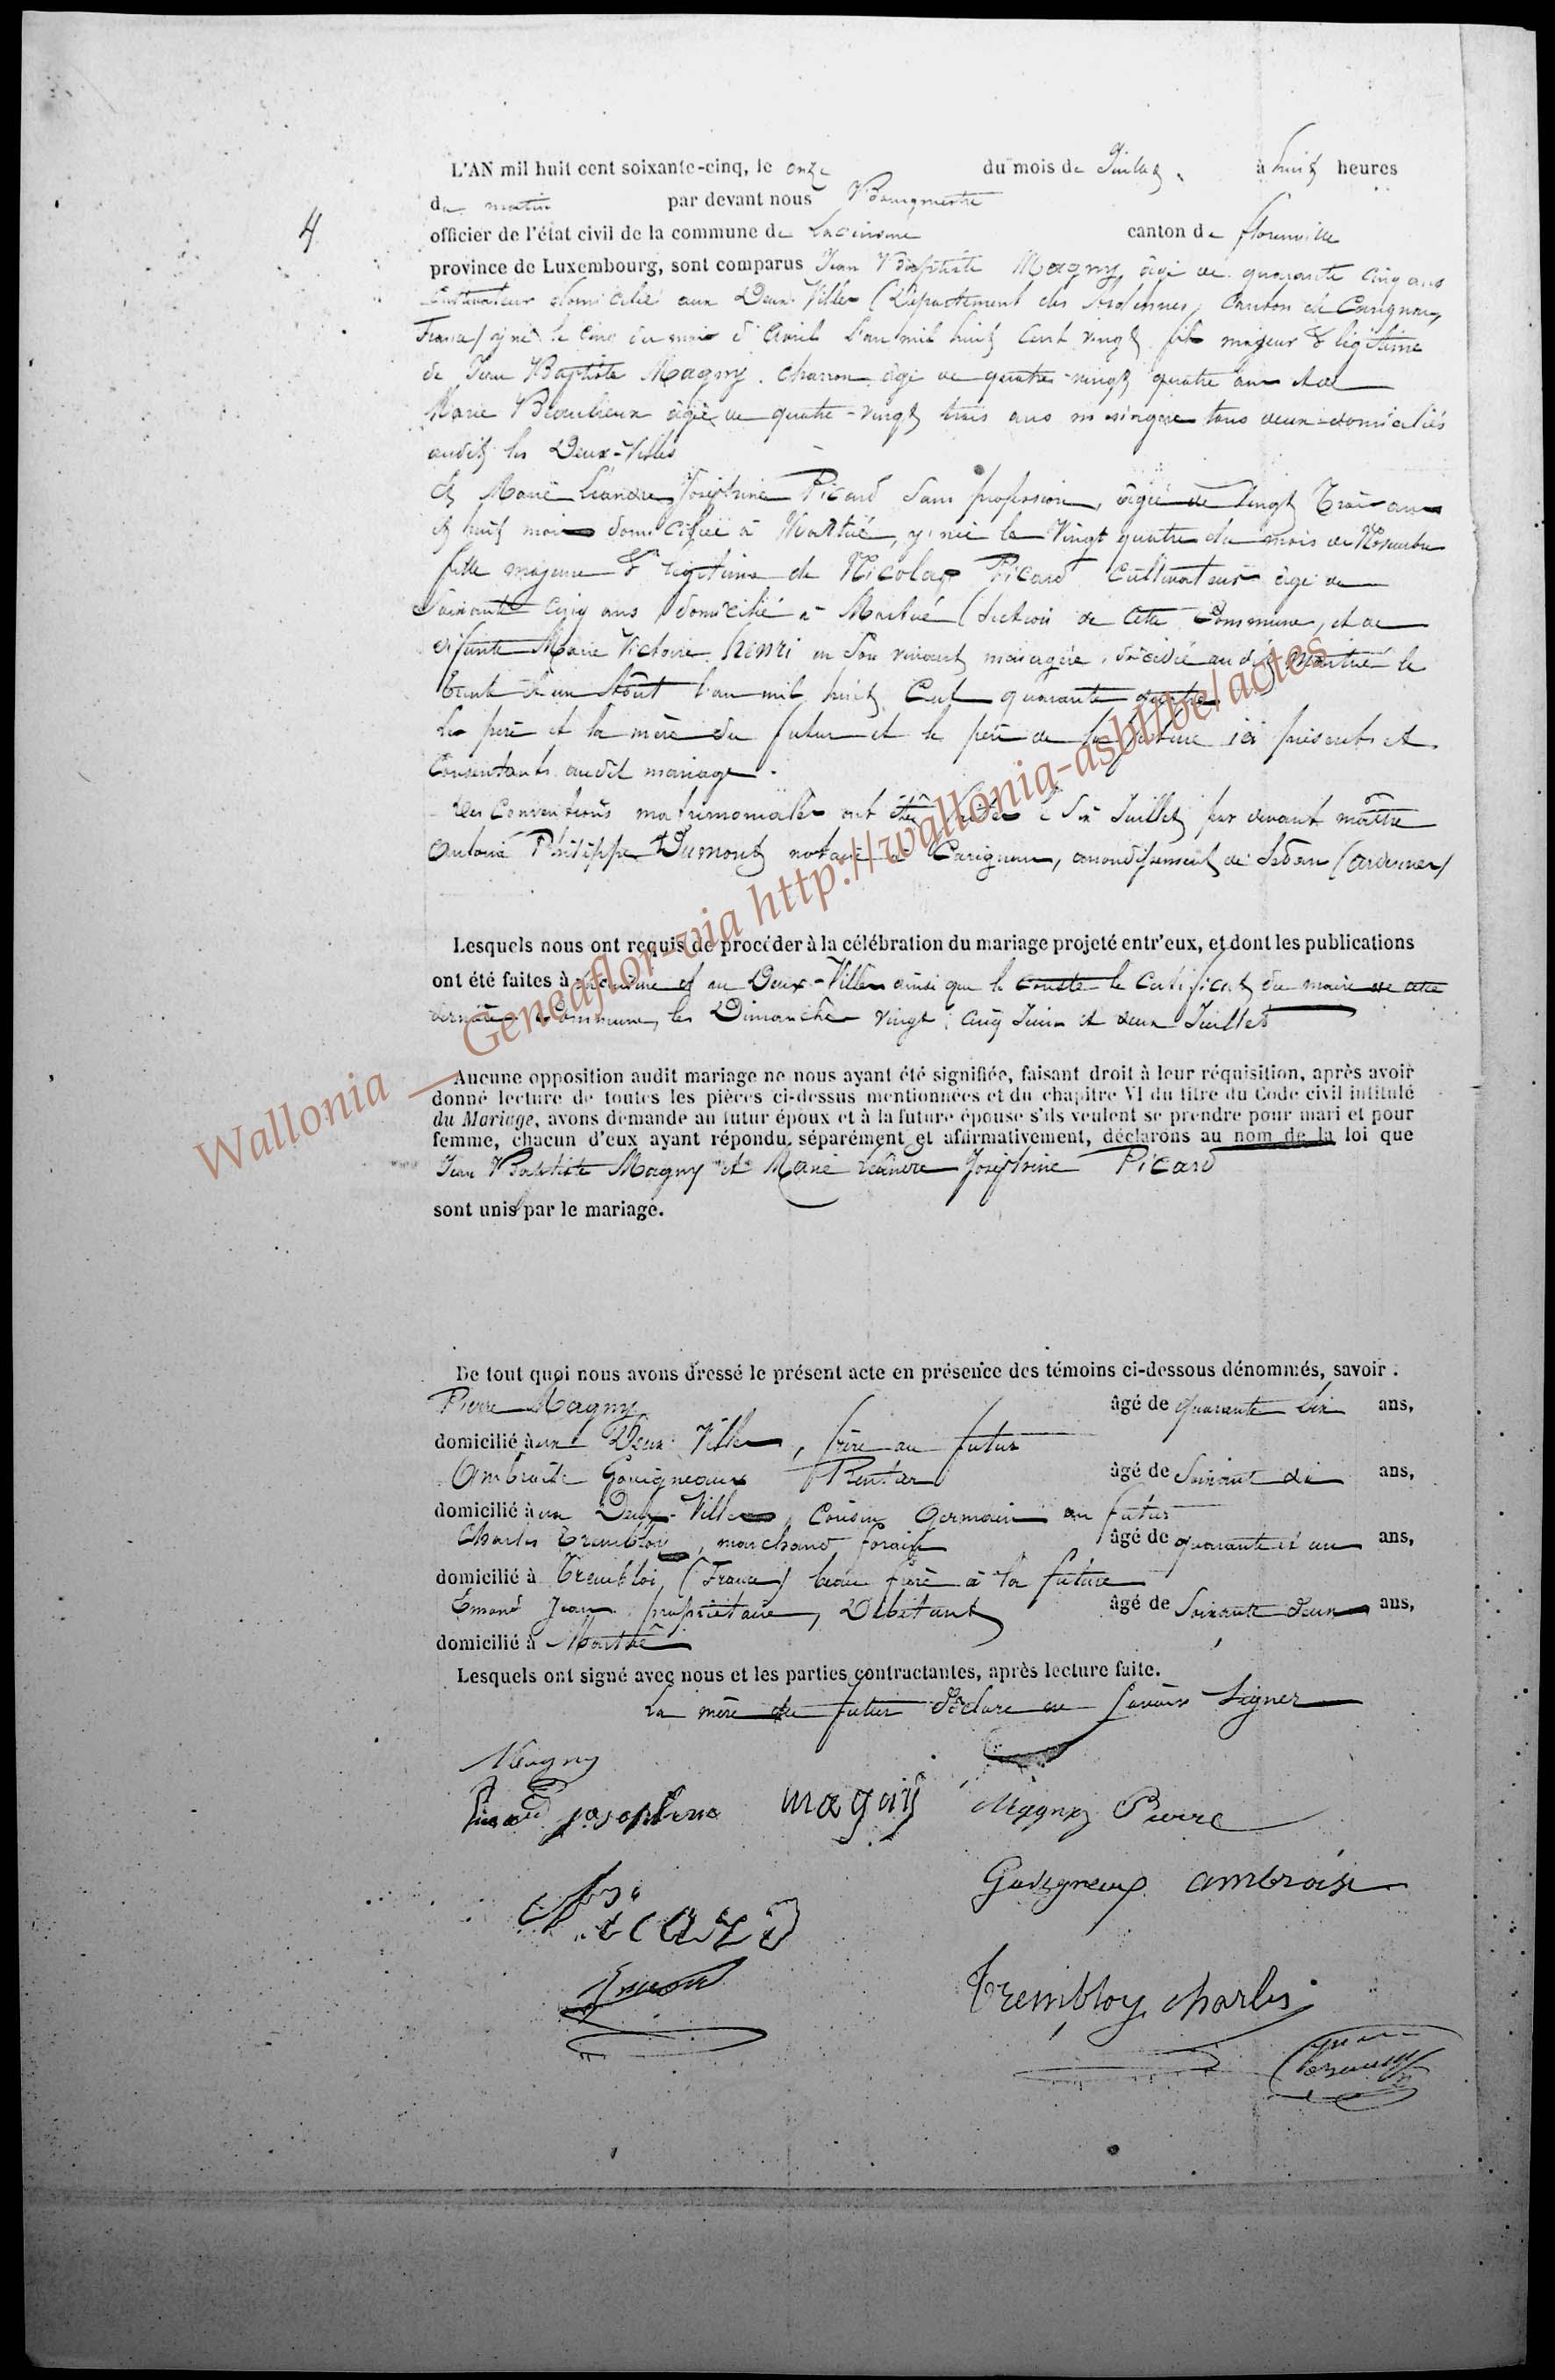 L'AN mil huit cent soixante-cinq, le onze du mois de Juillet, à huit heures
du matin par devant nous Bourgmestre
4
officier de l'état civil de la commune de Lacuisine canton de florenville
province de Luxembourg, sont comparus Jean Baptiste Magny, âgé de quarante cinq ans
Cultivateur domicilié aux Deux Villes (Département des Ardennes, Canton de Carignan,
France) y né le cinq du mois d'Avril l'an mil huit cent vingt fils majeur & légitime
de Jean Baptiste Magny, charron âgé de quatre-vingt quatre ans et de
Marie Beaulieux âgée de quatre-vingt trois ans ménagère tous deux domiciliés
audit les Deux-Villes
Et Marie Léandre Joséphine Picard sans profession, âgée de Vingt Trois ans
et huit mois domiciliée à Martué, y née le Vingt quatre du mois de Novembre
fille majeure & légitime de Nicolas Picard Cultivateur âgé de
Soixante Cinq ans domicilié à Martué (Section de cette Commune, et de
défunte Marie Victoire Henri en son vivant ménagère, décédée au dit Martué le
trente et un Août l'an mil huit Cent quarante quatre
Le père et la mère du futur et le père de la future ici présents et
Consentants audit mariage.
Les Conventions matrimoniales ont été faites le Six Juillet par devant maître
Antoine Philippe Dumont notaire à Carignan, arrondissement de Sedan (ardennes)
Lesquels nous ont requis de procéder à la célébration du mariage projeté entr'eux, et dont les publications
ont été faites à Lacuisine et au Deux-Villes ainsi que le conste le Certificat du maire de cette
dernière Commune, les Dimanches vingt cinq Juin et deux Juillet
Aucune opposition audit mariage ne nous ayant été signifiée, faisant droit à leur réquisition, après avoir
donné lecture de toutes les pièces ci-dessus mentionnées et du chapitre VI du titre du Code civil intitulé
du Mariage, avons demandé au futur époux et à la future épouse s'ils veulent se prendre pour mari et pour
femme, chacun d'eux ayant répondu séparément et affirmativement, déclarons au nom de la loi que
Jean Baptiste Magny et Marie Léandre Joséphine Picard
sont unis par le mariage.
De tout quoi nous avons dressé le présent acte en présence des témoins ci-dessous dénommés, savoir :
Pierre Magny âgé de quarante six ans,
domicilié aux Deux Villes, frère au futur
Ambroise Gouigneaux Rentier âgé de Soixante dix ans,
domicilié aux Deux-Villes, Cousin Germain au futur
Charles Trembloy, marchand forain âgé de quarante et un ans,
domicilié à Trembloi, (France) beau frère à la future
Emond Jean propriétaire, Débitant âgé de Soixante deux ans,
domicilié à Martué
Lesquels ont signé avec nous et les parties contractantes, après lecture faite.
La mère du futur déclare ne savoir signer
Magny
Picard josephine magny Magny Pierre
Guvigneaux ambroise
Picard
Emond
Trembloy charles
Wallonia _ Geneaflor-via http://wallonia-asbl/be/actes